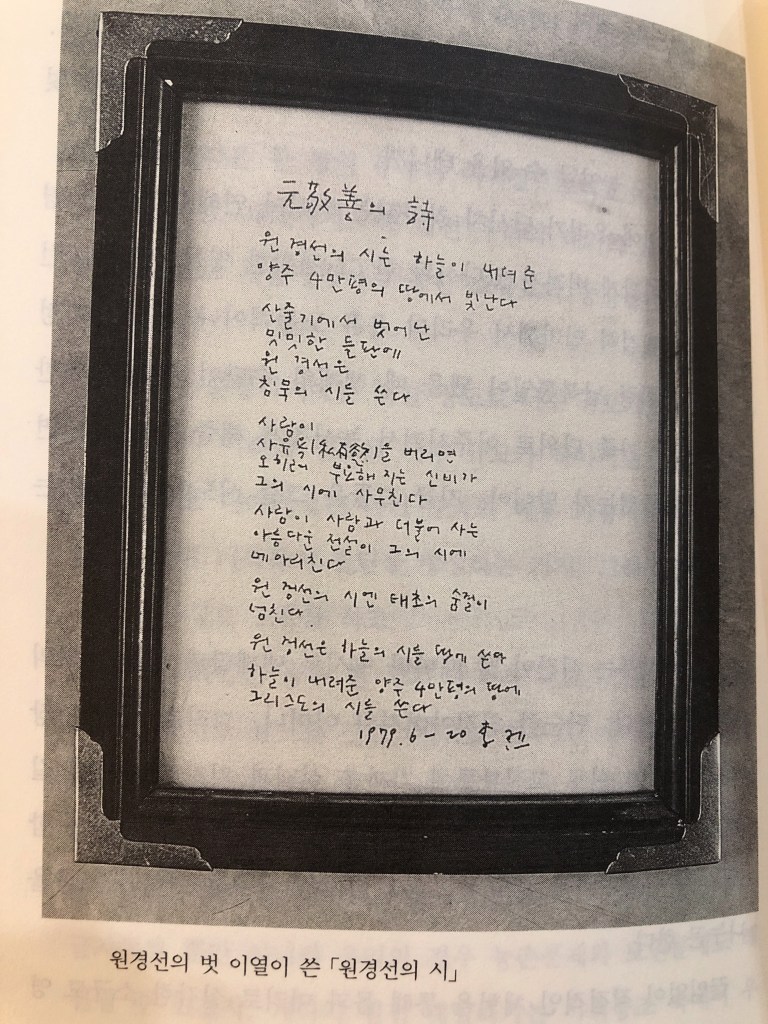 元敬善의 詩
원경선의 시는 하늘이 내려준
양주 4만평의 땅에서 빛난다
산줄기에서 벗어난
밋밋한 들판에
원 경선은
침묵의 시를 쓴다
사람이
사유욕(私有慾)을 버리면
오히려 부요해 지는 신비가
그의 시에 사무친다
사람이 사람과 더불어 사는
아름다운 전설이 그의 시에
메아리친다
원 경선의 시엔 태초의 숨결이
넘친다
원 경선은 하늘의 시를 땅에 쓴다
하늘이 내려준 양주 4만평의 땅에
그리스도의 시를 쓴다
1979.6-20 李 烈
원경선의 벗 이열이 쓴 「원경선의 시」